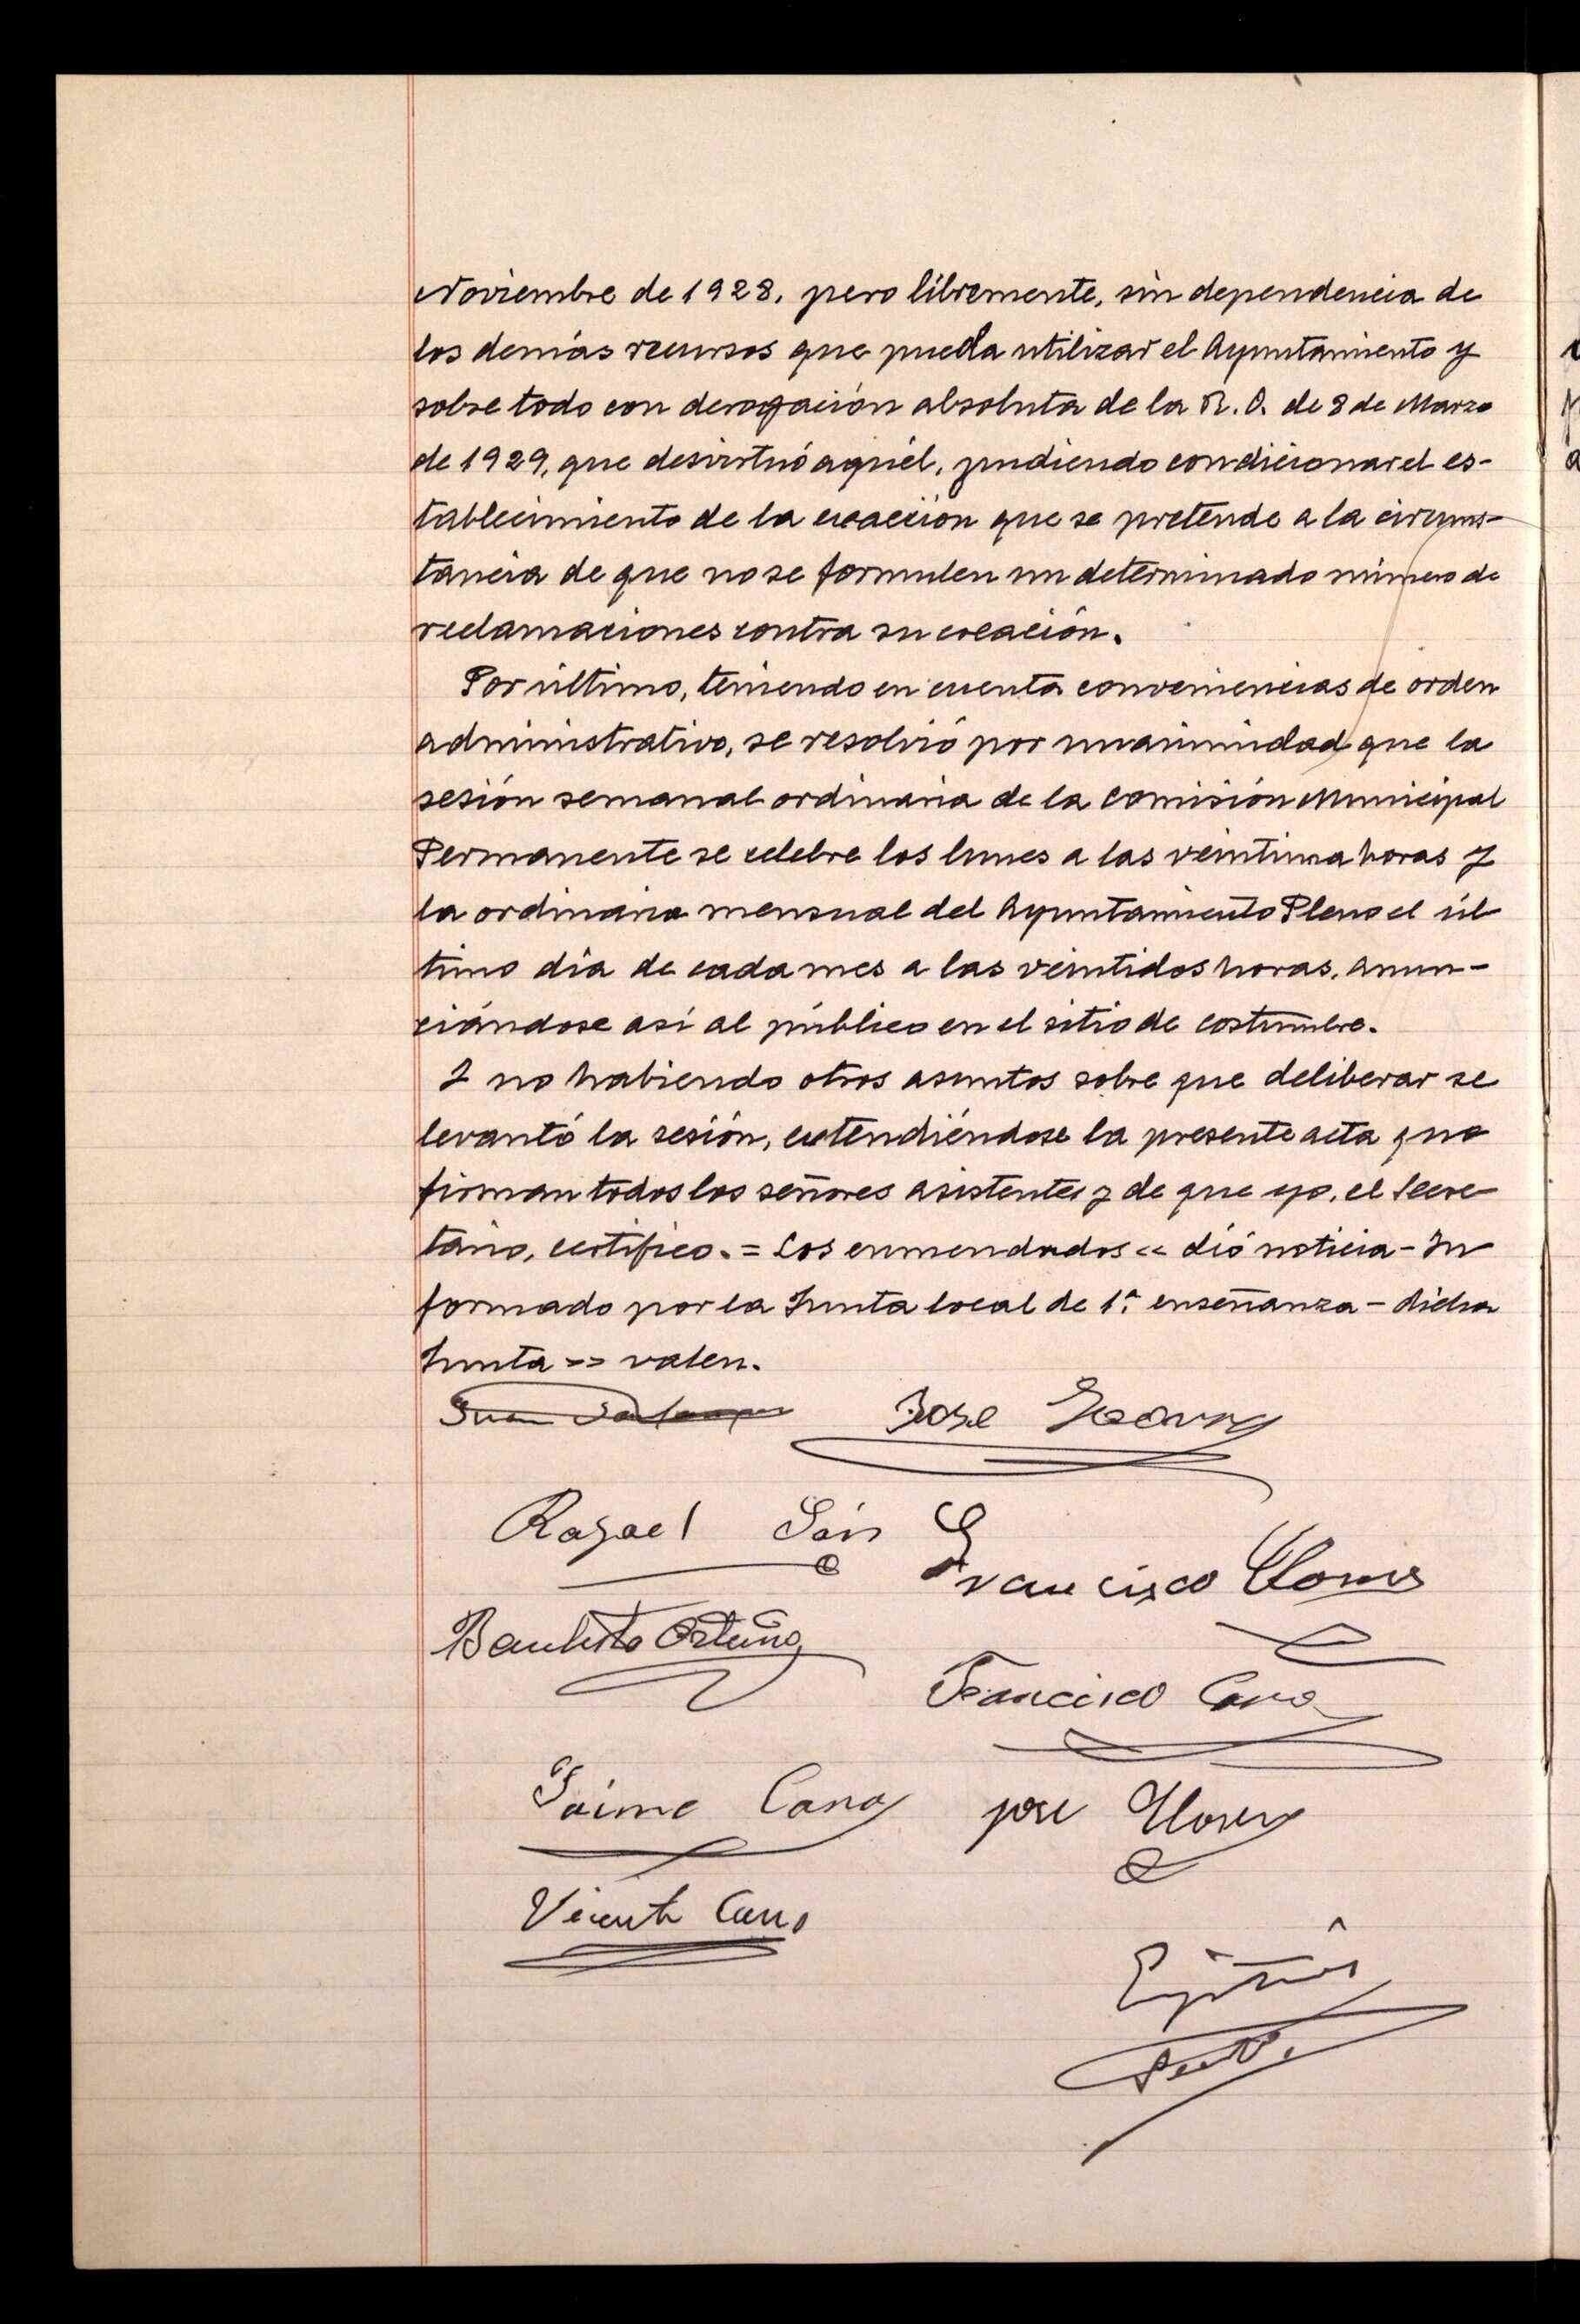 Noviembre de 1928, pero libremente, sin dependencia de
los demás recursos que pueda utilizar el Ayuntamiento y
sobre todo con derogación absoluta de la R. O. de 8 de Marzo
de 1929, que desvirtuó aquél, pudiendo condicionar el es-
tablecimiento de la exacción que se pretende a la circuns-
tancia de que no se formulen un determinado número de
reclamaciones contra su creación.
Por último, teniendo en cuenta conveniencias de orden
administrativo, se resolvió por unanimidad que la
sesión semanal ordinaria de la Comisión Municipal
Permanente se celebre los lunes a las veintiuna horas y
la ordinaria mensual del Ayuntamiento Pleno el úl-
timo día de cada mes a las veintidos horas, anun-
ciándose así al público en el sitio de costumbre.
Y no habiendo otros asuntos sobre que deliberar se
levantó la sesión, extendiéndose la presente acta que
firman todos los señores asistentes y de que yo, el Secre-
tario, certifico. = Los enmendados « dió noticia - In
formado por la Junta local de 1ª enseñanza - dicha
Junta » valen.
Juan
Jose
Rafael
Francisco
Bautista Ortuño
Francisco Cano
Jaime Cano
jose Llorens
Vicente Cano